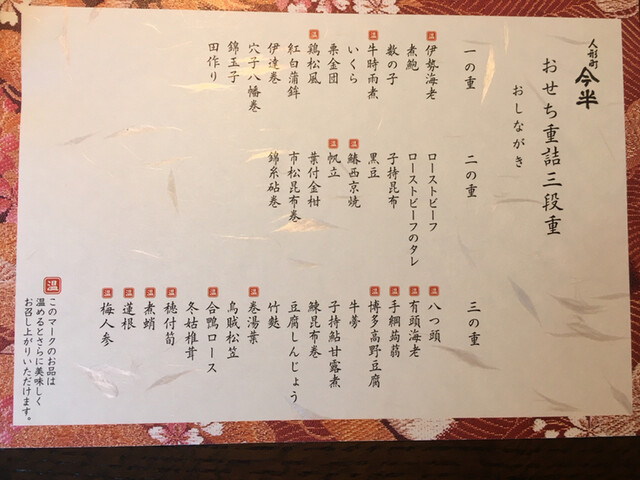 人形町 今半
おせち重詰三段重
おしながき
一の重
温 伊勢海老
煮鮑
数の子
温 牛時雨煮
いくら
栗金団
温 鶏松風
紅白蒲鉾
伊達巻
穴子八幡巻
錦玉子
田作り
二の重
ローストビーフ
ローストビーフのタレ
子持昆布
黒豆
温 鰆西京焼
温 帆立
葉付金柑
市松昆布巻
錦糸砧巻
三の重
温 八つ頭
温 有頭海老
温 手綱蒟蒻
温 博多高野豆腐
牛蒡
子持鮎甘露煮
鰊昆布巻
豆腐しんじょう
竹麩
温 巻湯葉
烏賊松笠
温 合鴨ロース
冬姑椎茸
温 穂付筍
温 煮蛸
温 蓮根
温 梅人参
温 このマークのお品は
温めるとさらに美味しく
お召し上がりいただけます。